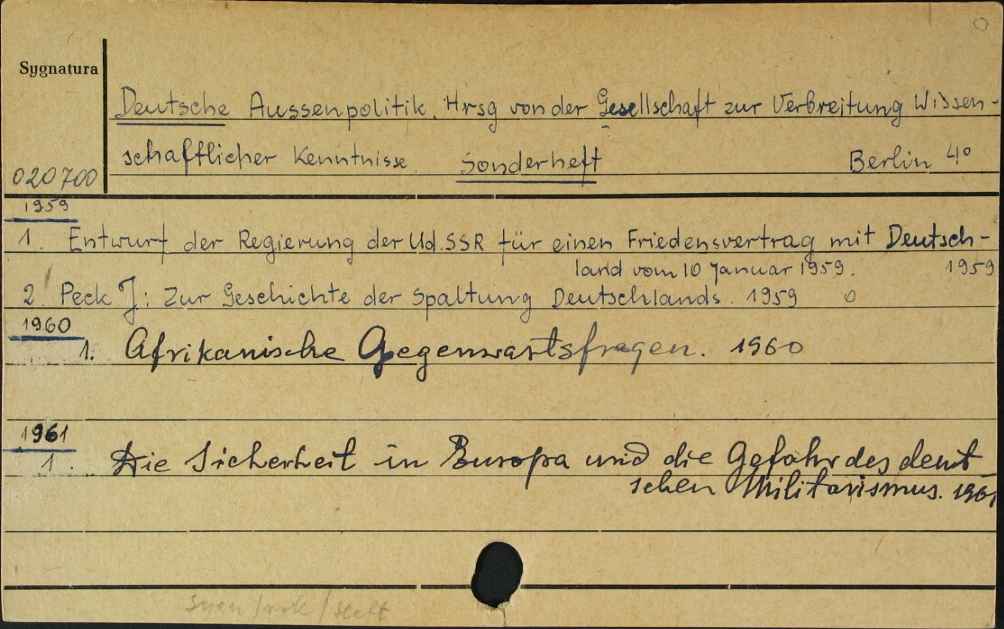 Sygnatura
Deutsche Aussenpolitik. Hrsg von der Gesellschaft zur Verbreitung Wissen-
schaftlicher Kenntnisse Sonderheft Berlin 4°
020700
1959
1. Entwurf der Regierung der Ud.SSR für einen Friedensvertrag mit Deutsch-
land vom 10 Januar 1959. 1959
2. Peck J: Zur Geschichte der Spaltung Deutschlands. 1959
1960
1. Afrikanische Gegenwartsfragen. 1960
1961
1. Die Sicherheit in Europa und die Gefahr des deut
schen Militarismus. 1961